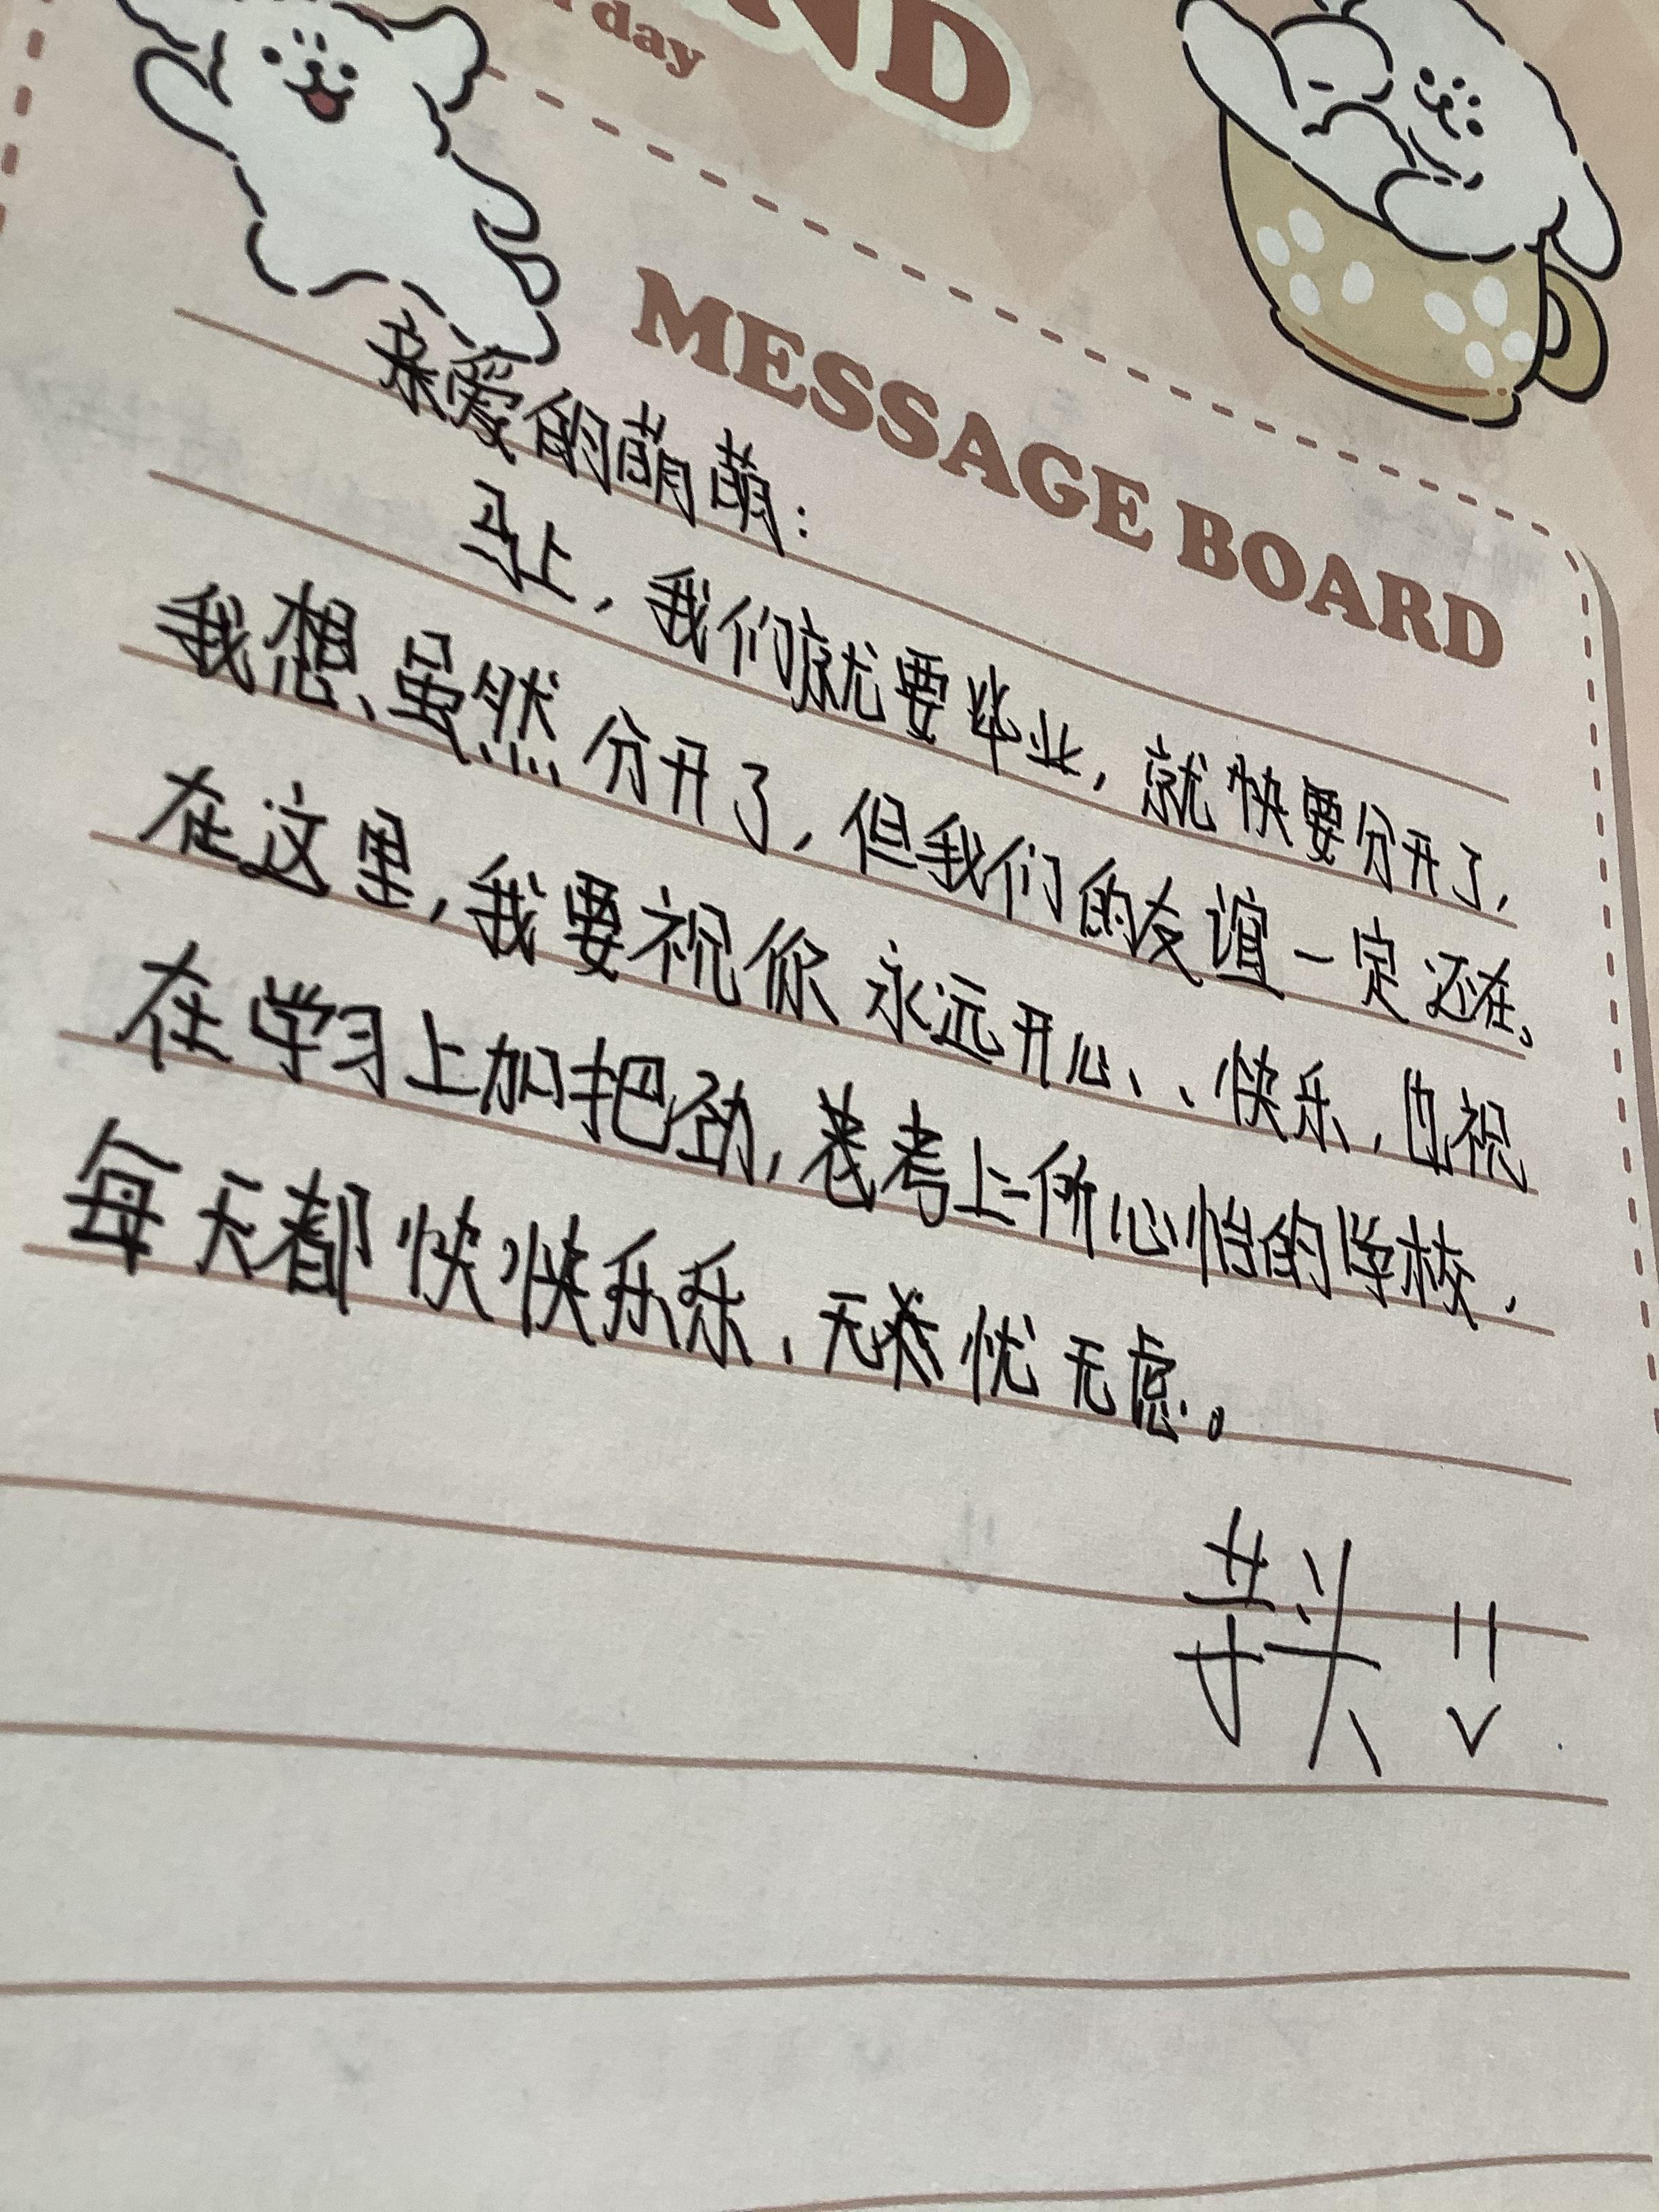 day
ND
MESSAGE BOARD
亲爱的萌萌：
马上，我们就要毕业，就快要分开了，
我想、虽然分开了，但我们的友谊一定还在。
在这里，我要祝你永远开心、、快乐，也祝
在学习上加把劲，考上所心怡的学校，
每天都快快乐乐、无忧无虑。